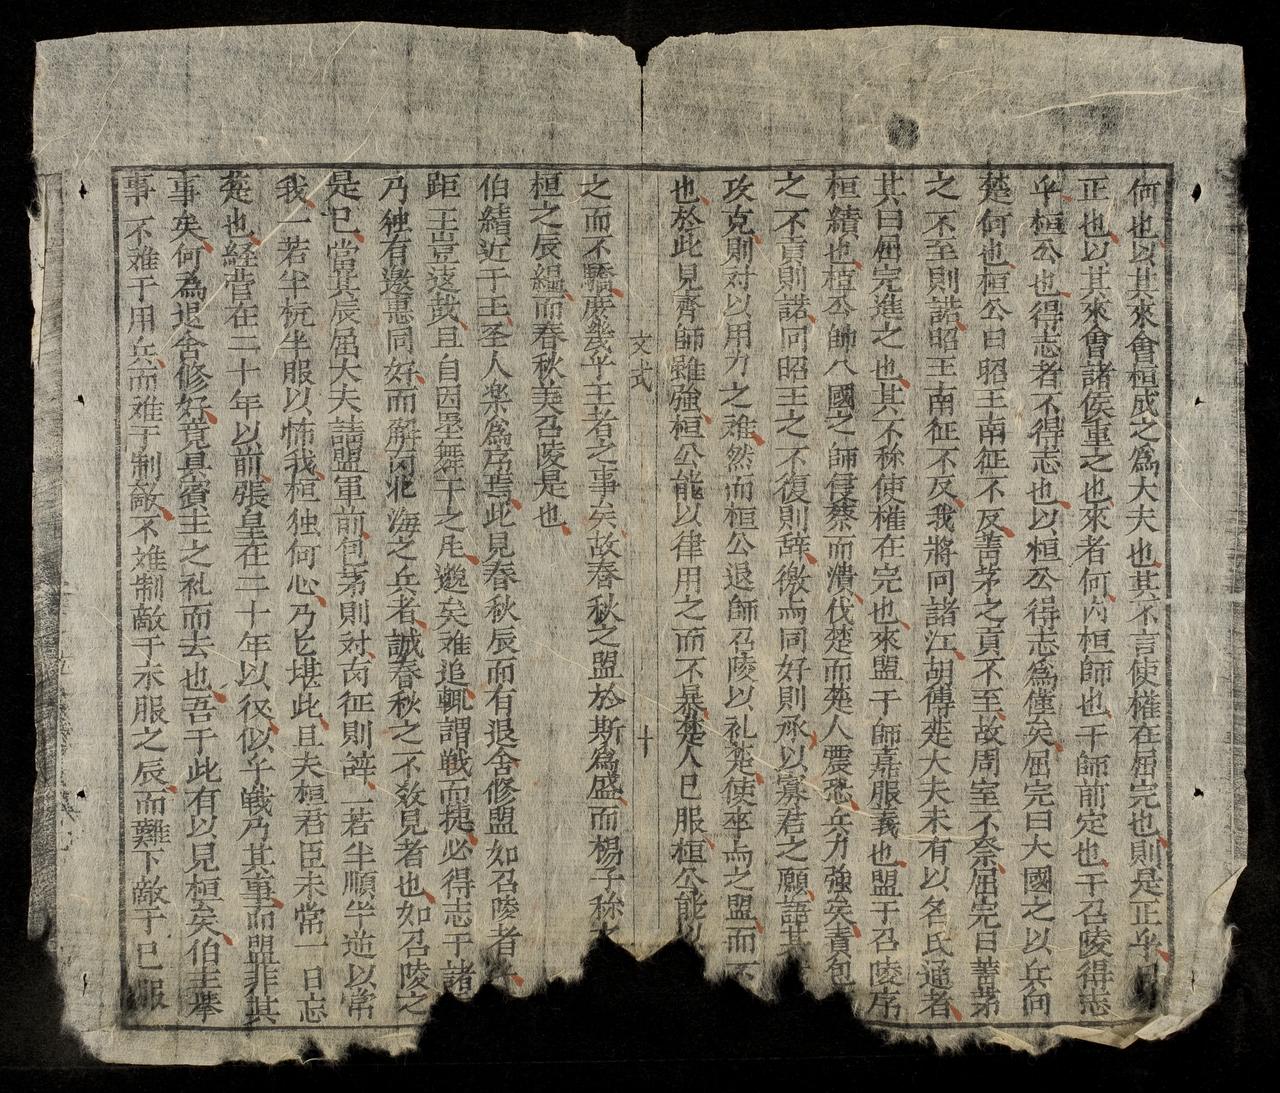 何也以其來會桓成之為大夫也其不言使權在屈完也則是正乎曰
正也以其來會諸侯重之也來者何内桓師也于師前定也于召陵得志
乎桓公也得志者不得志也以桓公得志為僅矣屈完曰大國之以兵向
楚何也桓公曰昭王南征不反菁茅之貢不至故周室不祭屈完曰菁茅
之不至則諾昭王南征不反我將问諸江胡傳楚大夫未有以名氏通者
其曰屈完進之也其不稱使權在完也來盟于師嘉服義也盟于召陵序
桓績也桓公師八國之師侵蔡而潰伐楚而楚人震恐兵力強矣責包
之不貢則諾问昭王之不復則辞徼与同好則承以寡君之願語其
攻克則对以用力之难然而桓公退師召陵以礼楚使卒与之盟而不
也於此見齊師雖強桓公能以律用之而不暴楚人已服桓公能以
文式
十
之而不驕庶幾乎王者之事矣故春秋之盟於斯為盛而楊子稱
桓之辰縕而春秋美召陵是也
伯績近于王圣人樂為序焉此見春秋辰而有退舍修盟如召陵者
距王豈遠哉且自因壘舞干之后邈矣难追輒謂戰而捷必得志于諸
乃独有邀惠同好而解丙北海之兵者誠春秋之不数見者也如召陵之
是已當其辰屈大夫詰盟軍前包茅則对南征則辞一若半順半逆以常
我一若半抗半服以怖我桓独何心乃七堪此且夫桓君臣未常一日忘
楚也経营在二十年以前張皇在二十年以後似乎戰乃其事而盟非其
事矣何為退舍修好竟具賓主之礼而去也吾于此有以見桓矣伯主举
事不难于用兵而难于制敵不难制敵于未服之辰而難下敵于已服